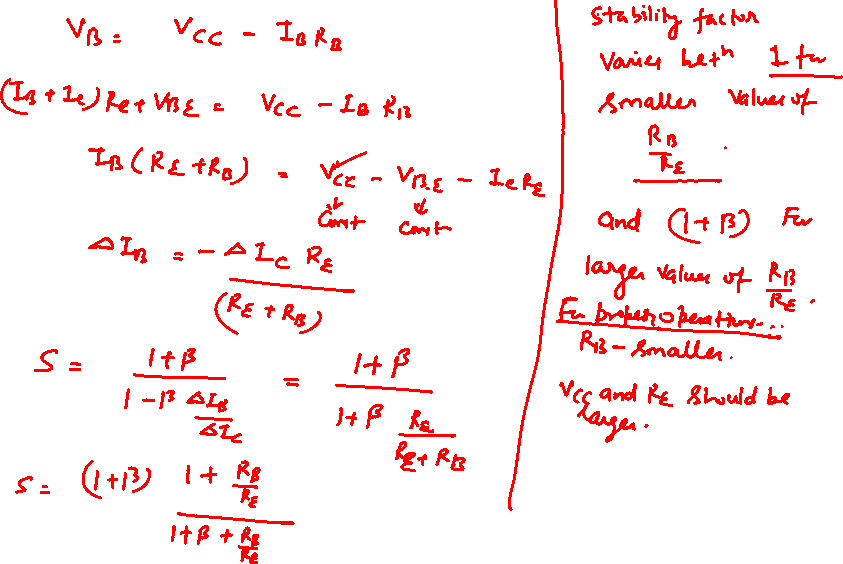 V_B = V_CC - I_B R_B
(I_B + I_C) R_E + V_BE = V_CC - I_B R_B
I_B (R_E + R_B) = V_CC - V_BE - I_C R_E
↓ Const ↓ Const
Δ I_B = - Δ I_C R_E / (R_E + R_B)
S = (1 + β) / (1 - β ΔI_B / ΔI_C) = (1 + β) / (1 + β R_E / (R_E + R_B))
S = (1 + β) (1 + R_B / R_E) / (1 + β + R_B / R_E)
Stability factor
Varies betⁿ 1 for
smaller values of
R_B / R_E .
and (1 + β) For
larger values of R_B / R_E .
For proper operation...
R_B - smaller.
V_CC and R_E should be
larger.